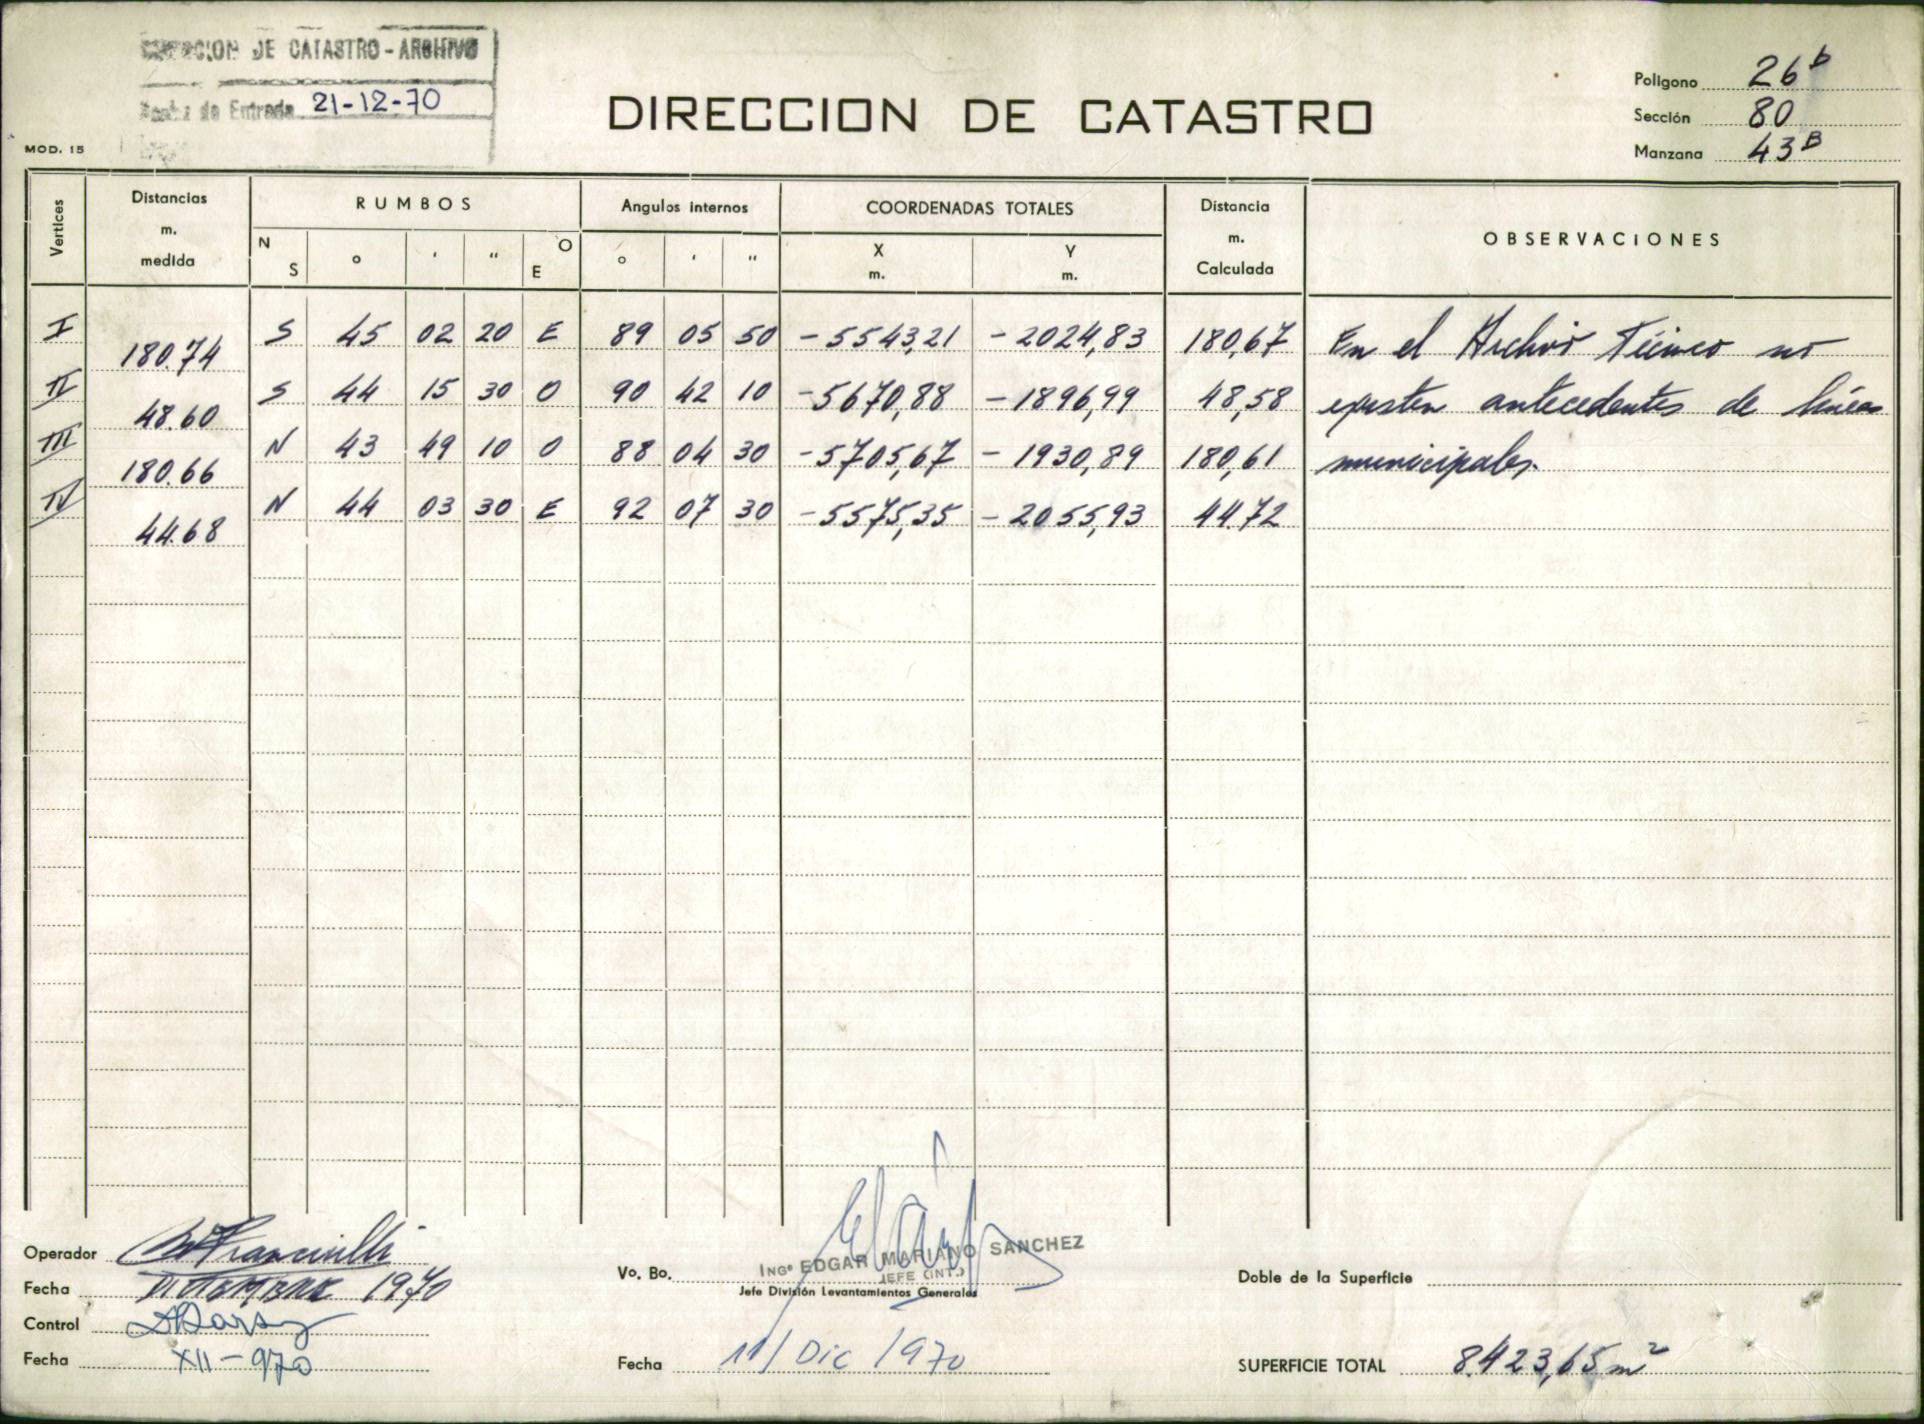 DIRECCION DE CATASTRO - ARCHIVO
Fecha de Entrada 21-12-70
MOD. 15
DIRECCION DE CATASTRO
Poligono 26 b
Sección 80
Manzana 43 B
Vertices
Distancias m. medida
RUMBOS
Angulos internos
COORDENADAS TOTALES
Distancia m. Calculada
OBSERVACIONES
N S ° ' " O E
° ' "
X m.
Y m.
I 180.74 S 45 02 20 E 89 05 50 -5543,21 -2024,83 180,67 En el Archivo Técnico no
II 48.60 S 44 15 30 O 90 42 10 -5670,88 -1896,99 48,58 existen antecedentes de lineas
III 180.66 N 43 49 10 O 88 04 30 -5705,67 -1930,89 180,61 municipales.
IV 44.68 N 44 03 30 E 92 07 30 -5575,35 -2055,93 44.72
Operador
Fecha DICIEMBRE 1970
Control
Fecha XII-970
Vo. Bo. ING° EDGAR MARIANO SANCHEZ
JEFE (INT.)
Jefe División Levantamientos Generales
Fecha 11/ Dic /970
Doble de la Superficie
SUPERFICIE TOTAL 8.423,65 m²